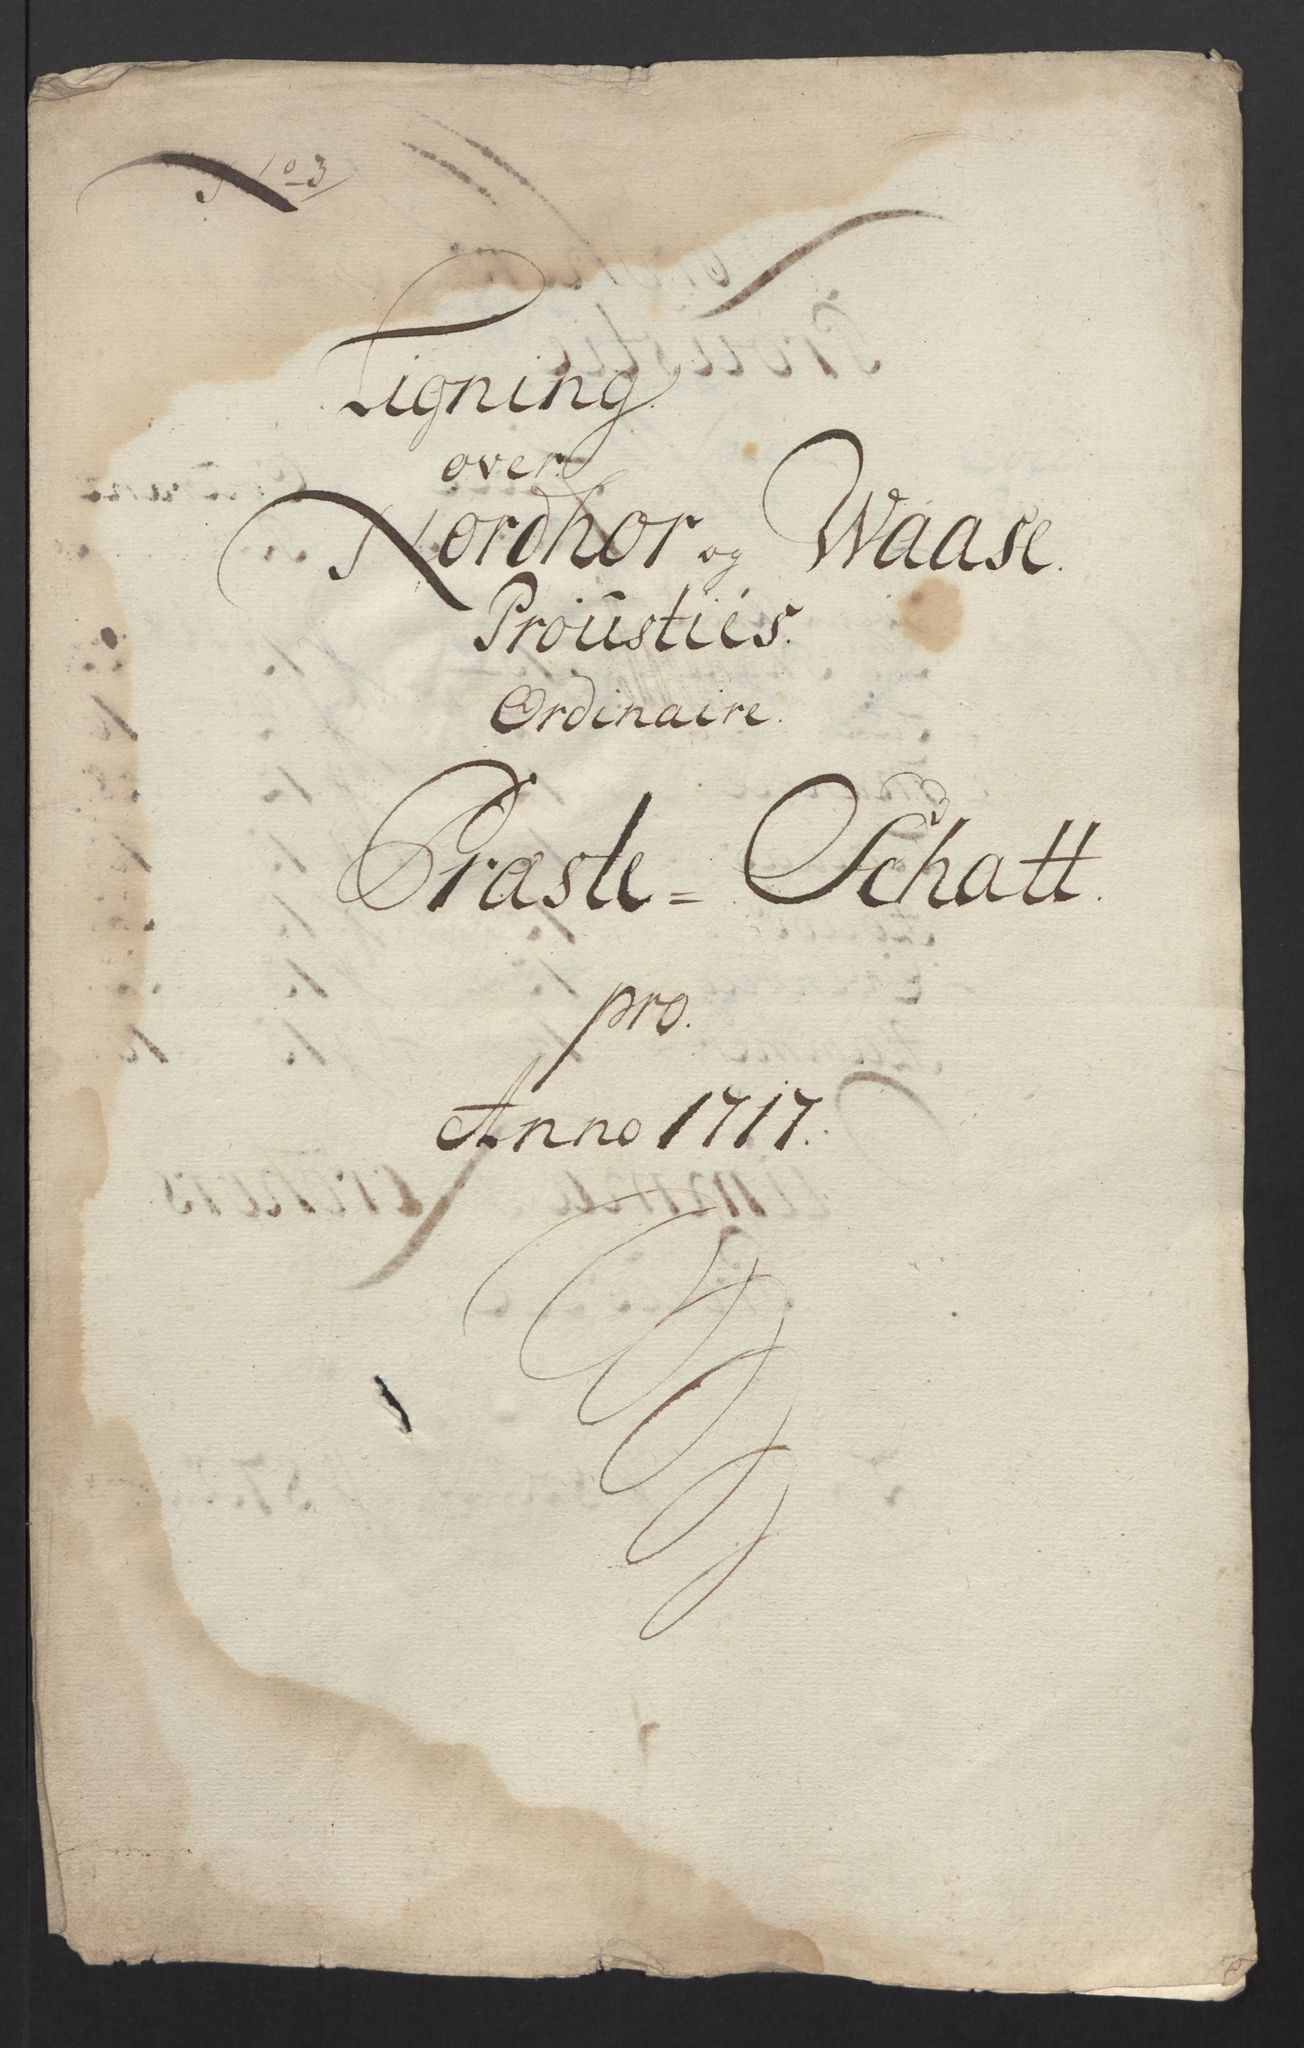 No 3
Ligning
over
Nordhor og Waase.
Proŭstiés.
Ordinaire.
Præste = Schatt.
pro.
Anno 1717.